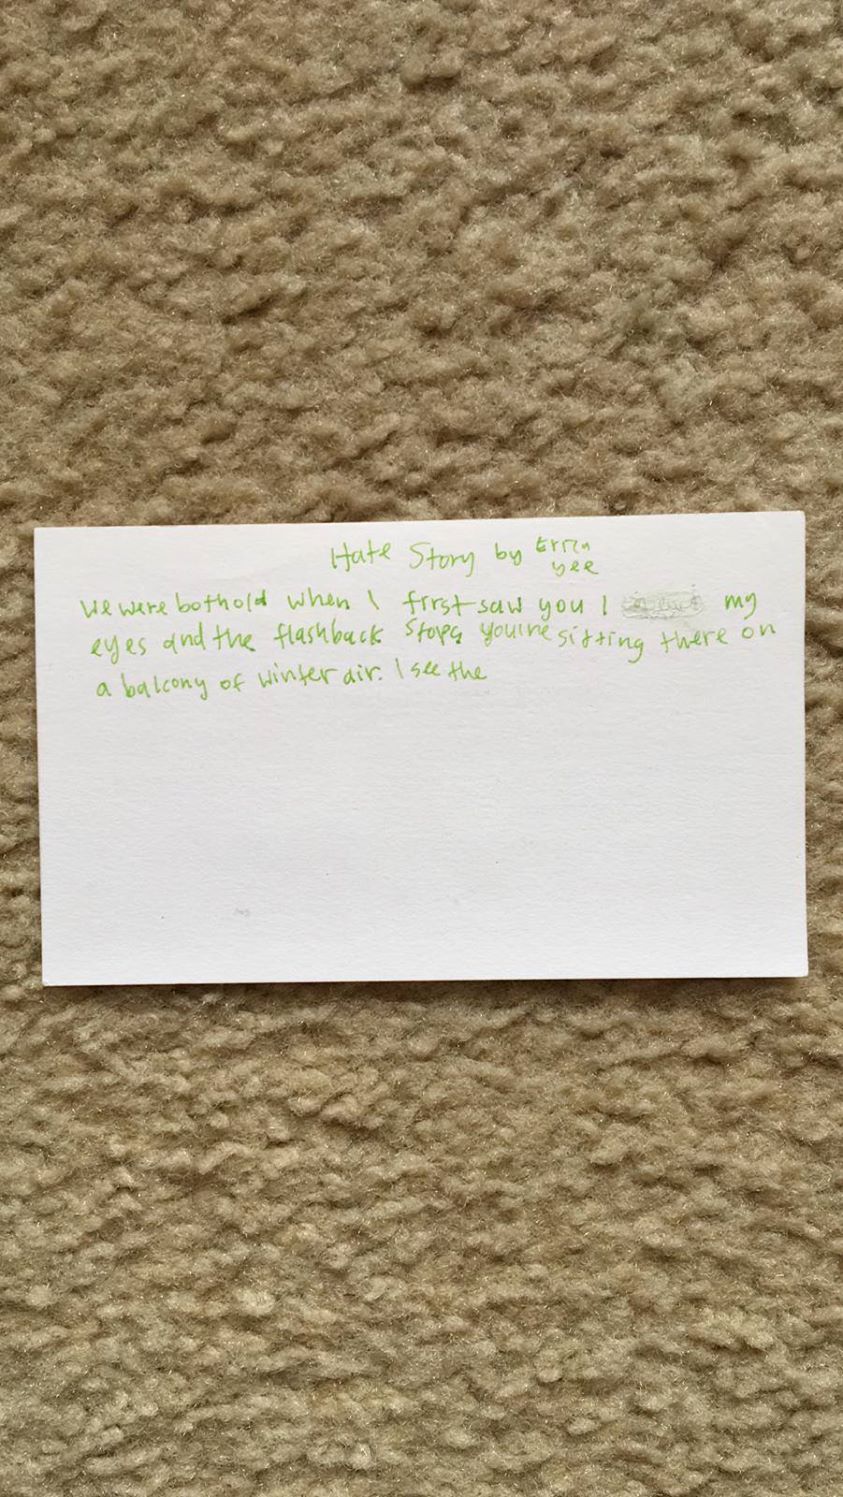 Hate Story by Errin
yee
We were both old when I first saw you I my
eyes and the flashback stops you're sitting there on
a balcony of winter air. I see the